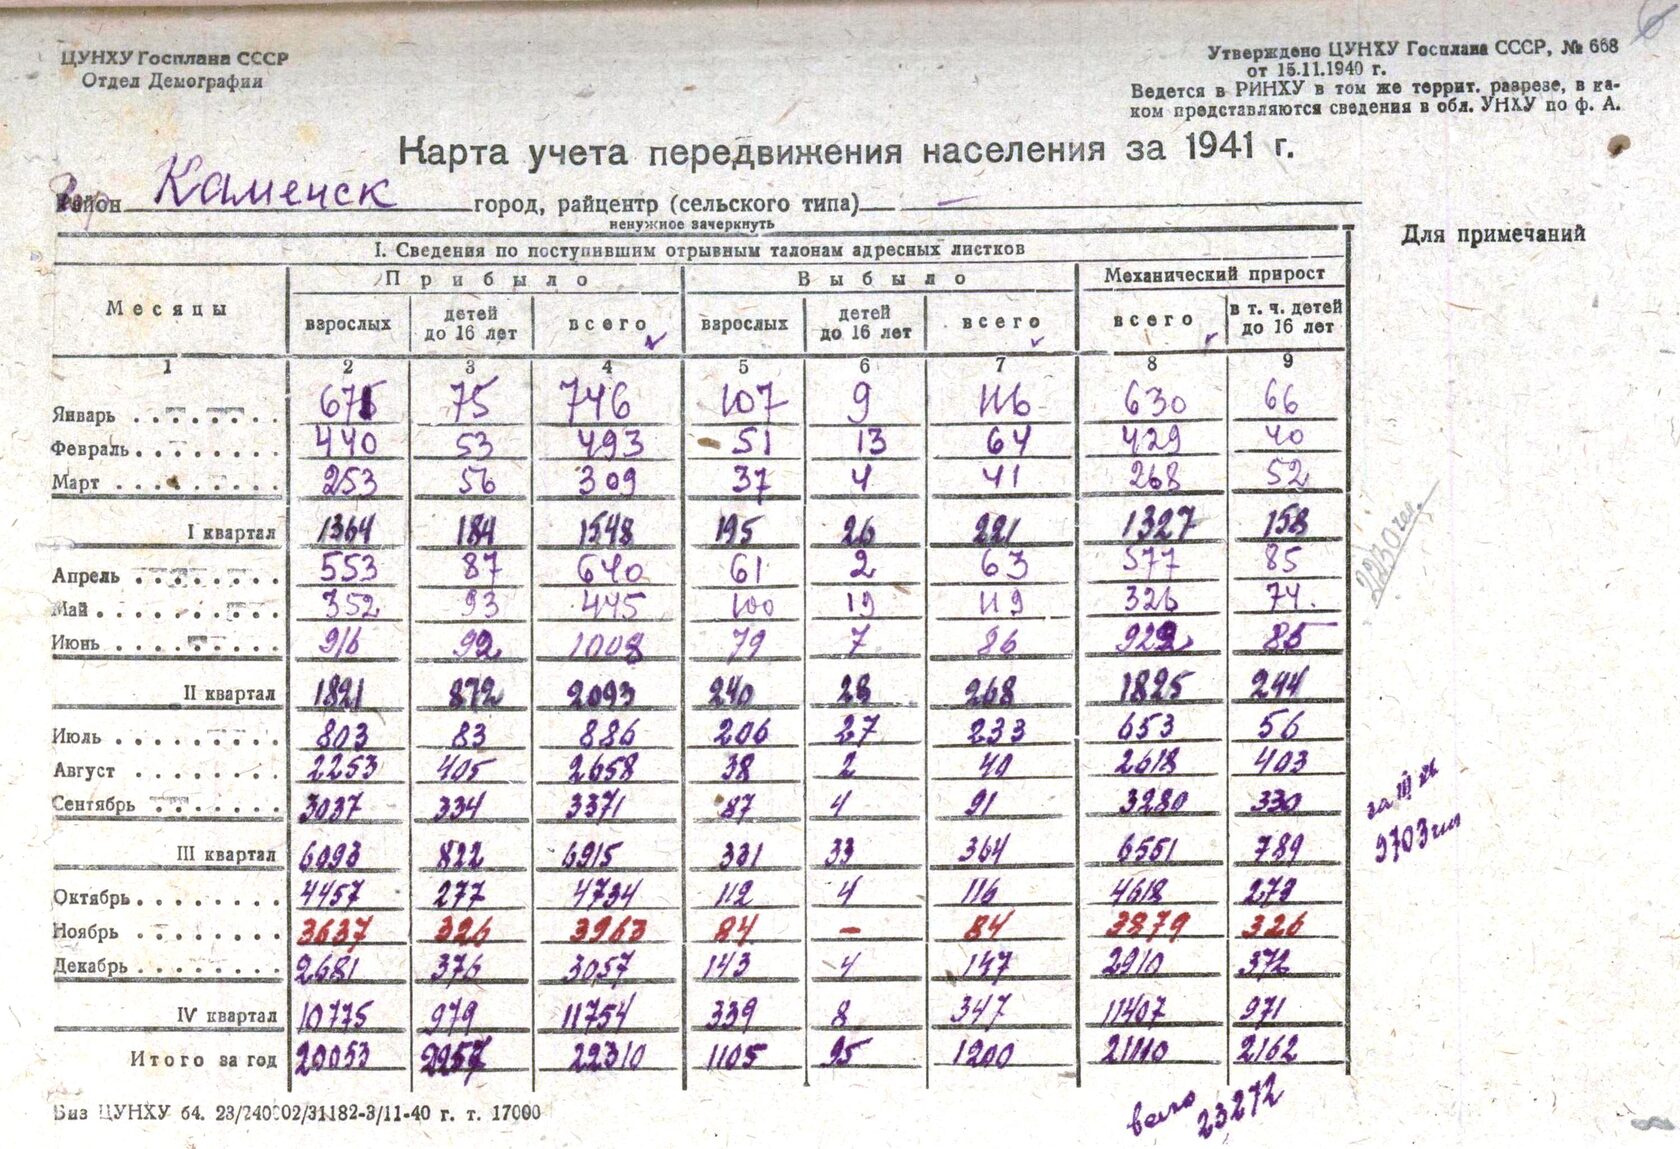 ЦУНХУ Госплана СССР
Отдел Демографии
Утверждено ЦУНХУ Госплана СССР, № 668
от 15.11.1940 г.
Ведется в РИНХУ в том же террит. разрезе, в ка-
ком представляются сведения в обл. УНХУ по ф. А.
Карта учета передвижения населения за 1941 г.
Район Каменск город, райцентр (сельского типа) —
ненужное зачеркнуть
Для примечаний
I. Сведения по поступившим отрывным талонам адресных листков
Месяцы Прибыло Выбыло Механический прирост
взрослых детей до 16 лет всего взрослых детей до 16 лет всего всего в т. ч. детей до 16 лет
1 2 3 4 5 6 7 8 9
Январь 671 75 746 107 9 116 630 66
Февраль 440 53 493 51 13 64 429 40
Март 253 56 309 37 4 41 268 52
I квартал 1364 184 1548 195 26 221 1327 158
Апрель 553 87 640 61 2 63 577 85
Май 352 93 445 100 19 119 326 74
Июнь 916 92 1008 79 7 86 922 85
II квартал 1821 272 2093 240 28 268 1825 244
Июль 803 83 886 206 27 233 653 56
Август 2253 405 2658 38 2 40 2618 403
Сентябрь 3037 334 3371 87 4 91 3280 330
III квартал 6093 822 6915 331 33 364 6551 789
Октябрь 4457 277 4734 112 4 116 4618 273
Ноябрь 3637 326 3963 84 — 84 3879 326
Декабрь 2681 376 3057 143 4 147 2910 372
IV квартал 10775 979 11754 339 8 347 11407 971
Итого за год 20053 2257 22310 1105 95 1200 21110 2162
2230 чел.
за III кв
9703 чел
всего
23272
Биз ЦУНХУ 64. 23/240002/31182-3/11-40 г. т. 17000